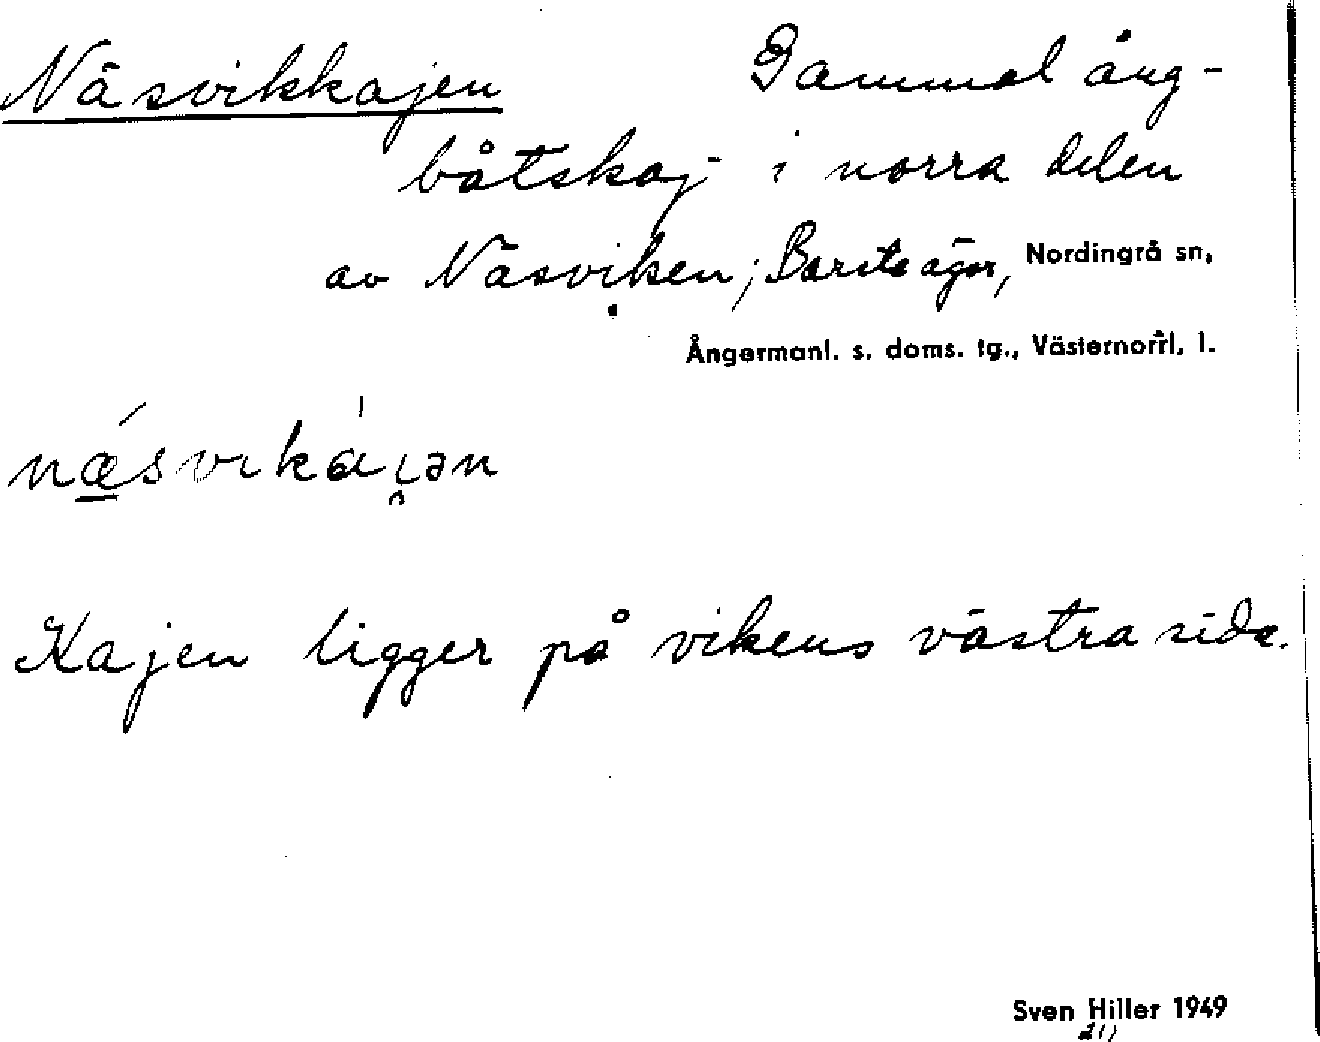 Näsvikkajen Gammal ång-
båtskaj i norra delen
av Näsviken; Barsta ägor, Nordingrå sn,
Ångermanl. s. doms. tg., Västernorrl. l.
Kajen ligger på vikens västra sida.
Sven Hiller 1949